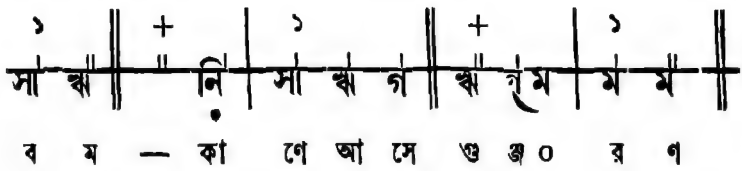 ১ + ১ + ১
সা ঋ নি সা ঋ গ ঋ গ ম ম ম
ব ম — কা ণে আ সে গু ঞ্জ ০ র ণ